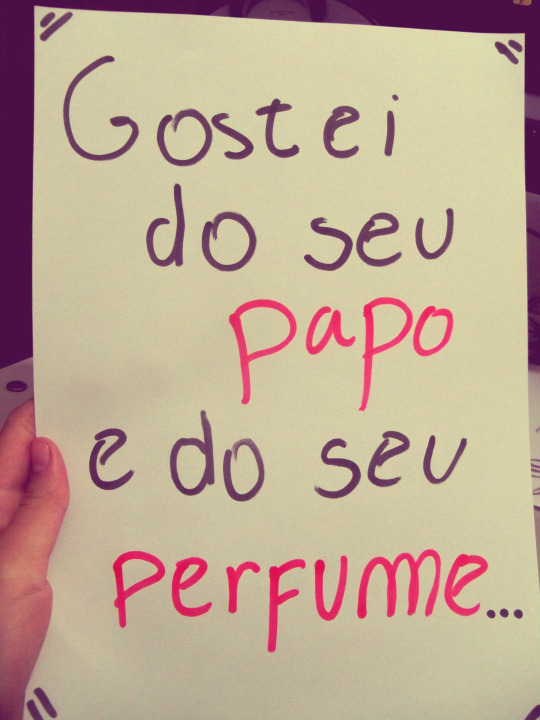 Gostei
do seu
papo
e do seu
perfume...